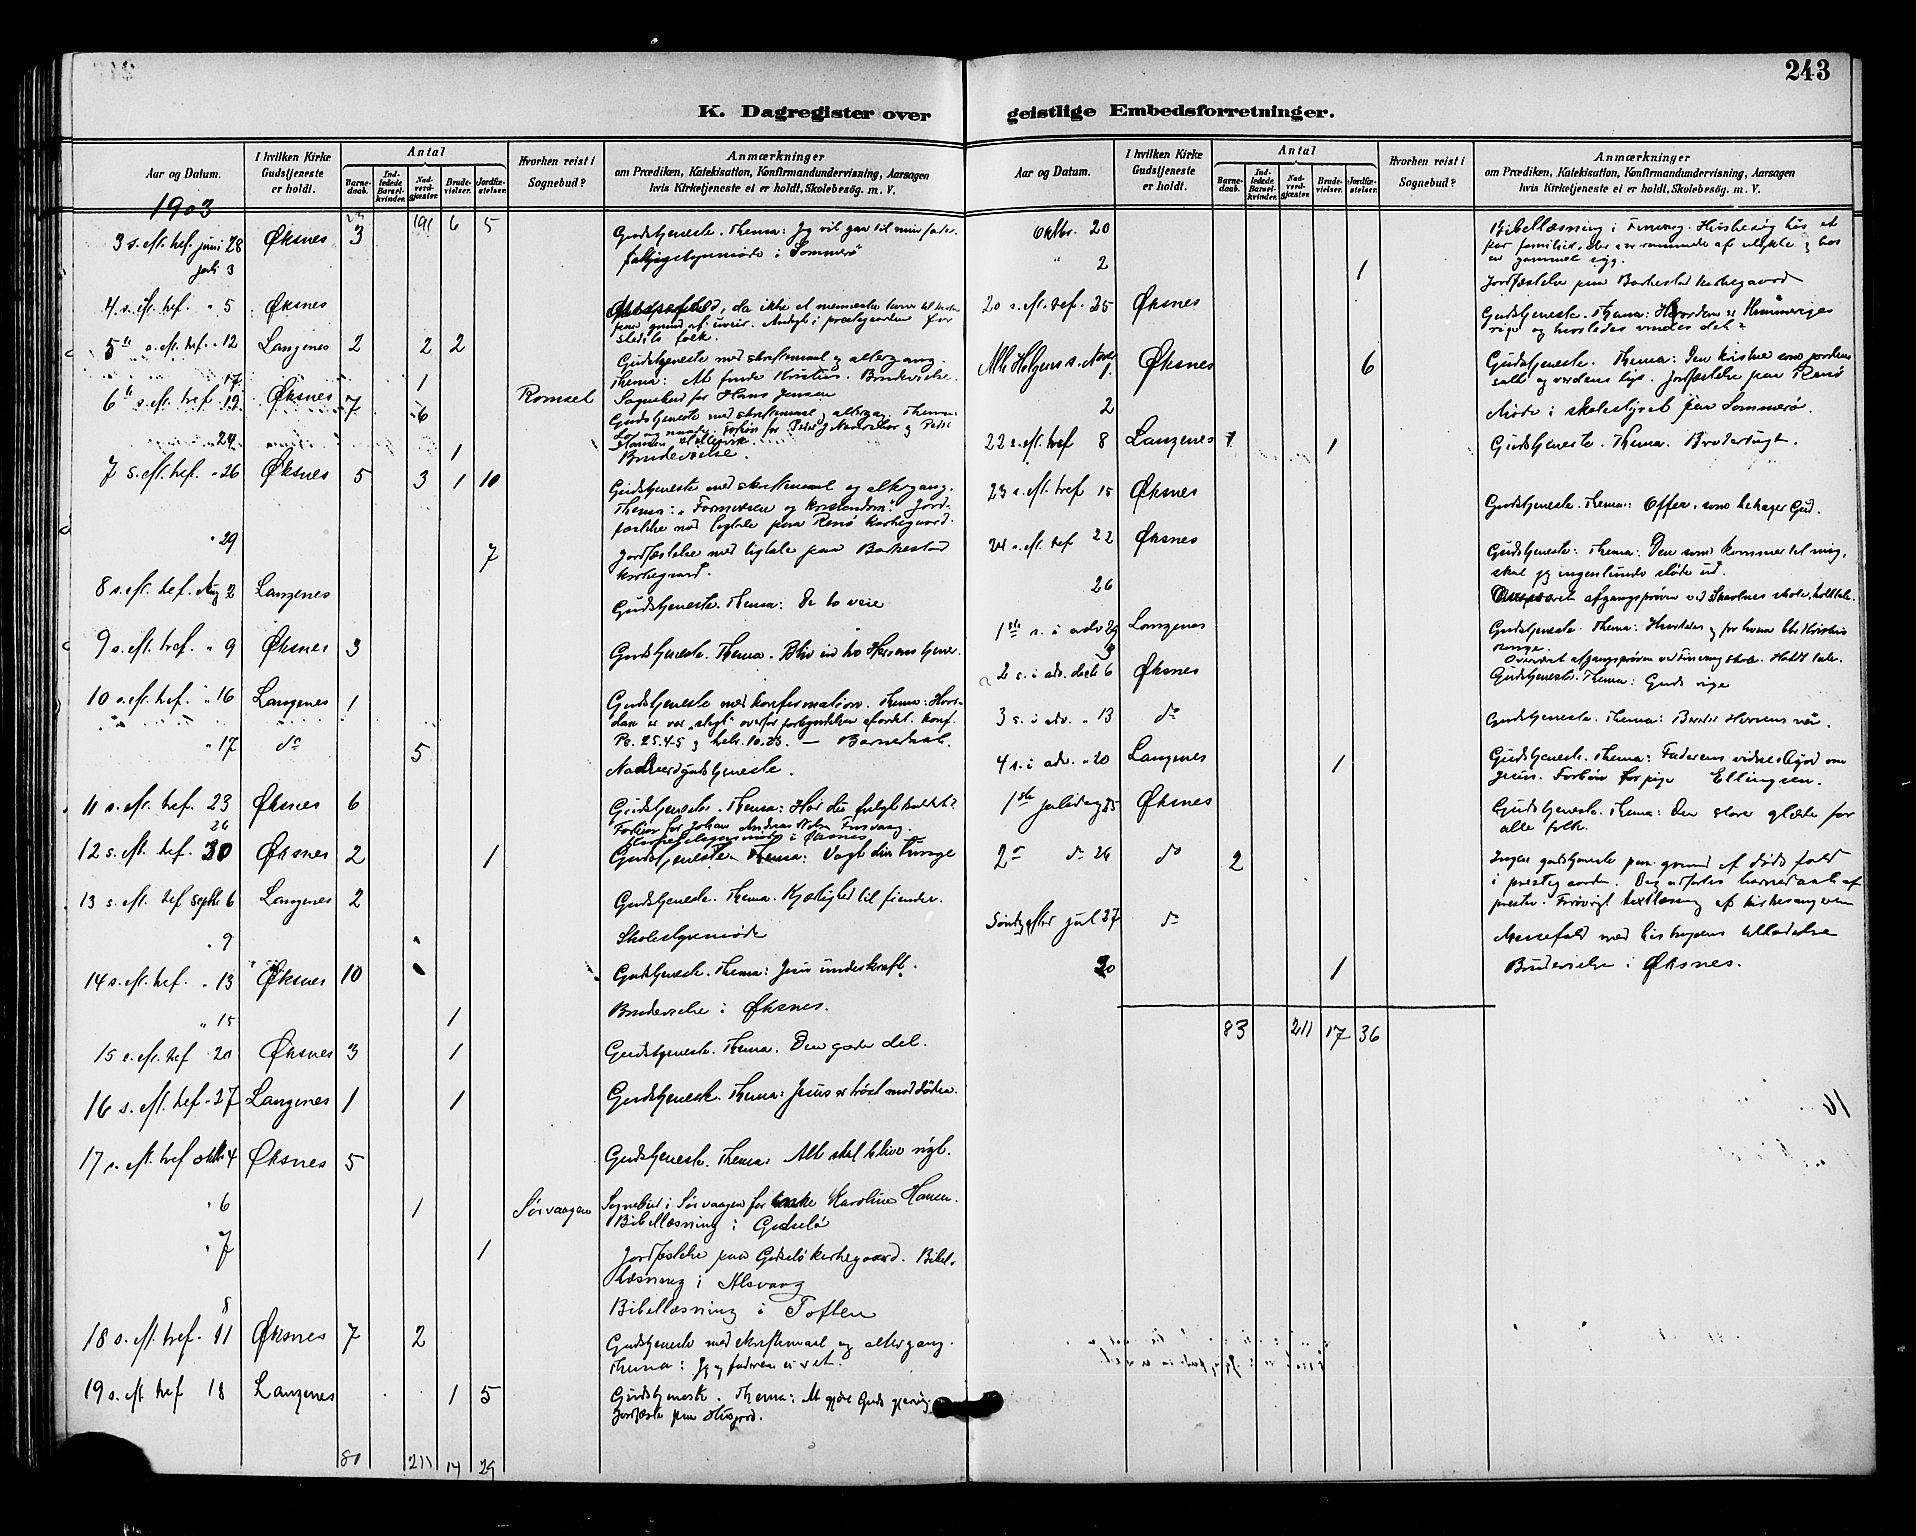 243
K. Dagregister over geistlige Embedsforretninger.
Aar og Datum. I hvilken Kirke Gudstjeneste er holdt. Antal Barnedaab. Indledede Barselkvinder. Nadverdgjæster. Brudevielser. Jordfæstelser. Hvorhen reist i Sognebud? Anmærkninger om Prædiken, Katekisation, Konfirmandundervisning, Aarsagen hvis Kirketjeneste ei er holdt, Skolebesøg. m. V.
1903
23 191 6 5
3 s. eft. tref. juni 28 Øksnes 3 Gudstjeneste. Thema: Jeg vil gaa til min fader.
juli 3 i Sommerø
4 s. eft. tref. " 5 Øksnes da ikke et menneske
paa grund af uveir. Andagt i præstegaarden for
stedets folk.
5te s. eft. tref. " 12 Langenes 2 2 2 Gudstjeneste med skriftemaal og altergang.
Thema: At finde Kristus. Brudevielse.
" 17 1 Romset Sognebud for Hans Jensen
6te s. eft. tref " 19 Øksnes 7 6 Gudstjeneste med skriftemaal og altergang. Thema:
" 24 1 Brudevielse.
7 s. eft. tref. " 26 Øksnes 5 3 1 10 Gudstjeneste med skriftemaal og altergang.
Thema: "Fornuften og kristendom. Jord-
fæstelse med ligtale paa Renø kirkegaard.
" 29 7 Jordfæstelse med ligtale paa Barkestad
kirkegaard.
8 s. eft. tref. Aug 2 Langenes Gudstjeneste. Thema: De to veie
9 s. eft. tref. " 9 Øksnes 3 Gudstjeneste. Thema. Bliv en tro Herrens tjener.
10 s. eft. tref. " 16 Langenes 1 Gudstjeneste med konfirmation. Thema: Hvor-
dan er vor "slegt" overfor Konf.
Ps. 25.4-5 og hebr. 10.23. — Barnedaab.
" 17 do 5 Nadverdgudstjeneste.
11 s. eft. tref. 23 Øksnes 6 Gudstjeneste. Thema: Har du fulgt kaldet?
Forbøn for Johan Andreas Finsvaag.
26 i Øksnes
12 s. eft. tref. 30 Øksnes 2 1 Gudstjeneste. Thema: Vogt din tunge
13 s. eft. tref septb 6 Langenes 2 Gudstjeneste. Thema. Kjærlighed til fiender.
" 9 Skolestyremøde
14 s. eft. tref. " 13 Øksnes 10 Gudstjeneste. Thema: Jesu underkraft.
" 15 1 Brudevielse i Øksnes.
15 s. eft. tref 20 Øksnes 3 1 Gudstjeneste. Thema. Den gode del.
16 s. eft. tref. " 27 Langenes 1 1 Gudstjeneste. Thema: Jesus er trøst mod døden.
17 s. eft. tref oktb 4 Øksnes 5 Gudstjeneste. Thema: Alt skal blive nyt.
" 6 1 Sørvaagen Sognebud i Sørvaagen for enke Karoline Hansen.
Bibellæsning i Gisslø
" 7 1 Jordfæstelse paa kirkegaard. Bibel-
læsning i Alsvaag
8 Bibellæsning i Toften
18 s. eft. tref. 11 Øksnes 7 2 Gudstjeneste med skriftemaal og altergang.
Thema: Jeg og faderen er et.
19 s. eft tref 18 Langenes 1 5 Gudstjeneste. Thema: At gjøre Guds gjerning.
Jordfæste paa
80 211 17 29
Aar og Datum. I hvilken Kirke Gudstjeneste er holdt. Antal Barnedaab. Indledede Barselkvinder. Nadverdgjæster. Brudevielser. Jordfæstelser. Hvorhen reist i Sognebud? Anmærkninger om Prædiken, Katekisation, Konfirmandundervisning, Aarsagen hvis Kirketjeneste ei er holdt, Skolebesøg. m. V.
Oktbr. 20 Bibellæsning i Finsvaag. Husbesøg hos et
par familier, der er rammede af ulykke og hos
en gammel syg.
" 2 1 Jordfæstelse paa Barkestad kirkegaard
20 s. eft. tref. 25 Øksnes Gudstjeneste. Thema: Hvordan er Himmeriges
rige og hvorledes vindes det?
Alle Helgens s. Novbr 1. Øksnes 6 Gudstjeneste. Thema: Den kristne som jordens
salt og verdens lys. Jordfæstelse paa Renø
2 Møde i skolestyret paa Sommerø.
22 s. eft. tref 8 Langenes 1 1 Gudstjeneste. Thema.
23 s. eft. tref 15 Øksnes Gudstjeneste. Thema: Offer, som behager Gud.
24 s. eft. tref 22 Øksnes Gudstjeneste: Thema: Den som kommer til mig,
skal jeg ingenlunde støde ud.
26 Overværet afgangsprøven ved Skavlnes skole, holdt tale.
1ste s. i adv 29 Langenes Gudstjeneste. Thema: Hvorledes og for hvem blir Kristus
konge.
3 Overværet afgangsprøven ved Finsvaag skole. Holdt tale.
2 s. i adv. decb 6 Øksnes Gudstjeneste. Thema: Guds rige
3 s. i adv. " 13 do Gudstjeneste. Thema: Bered Herrens vei.
4 s. i adv. " 20 Langenes 1 Gudstjeneste. Thema: Faderens vidnesbyrd om
Jesus. Forbøn for pige Ellingsen.
1ste juledag 25 Øksnes Gudstjeneste. Thema: Den store glæde for
alle folk.
2den do 26 do 2 Ingen gudstjeneste paa grund af dødsfald
i prestegaarden. Dog udførtes barnedaab af
presten. Forøvrigt textlæsning af kirkesangeren
Søndag efter jul 27 do Messefald med biskopens tilladelse
30 1 Brudevielse i Øksnes.
83 211 17 36